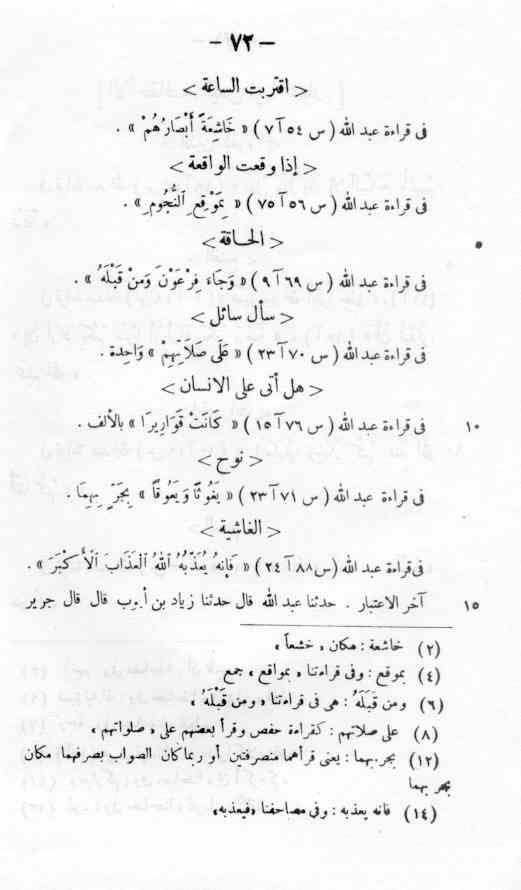 — ٧٣ —
< اقتربت الساعة >
فى قراءة عبد الله ( س ٥٤ آ ٧ ) « خَاشِعَةً أَبْصَارُهُمْ » .
< إذا وقعت الواقعة >
فى قراءة عبد الله ( س ٥٦ آ ٧٥ ) « بِمَوْقِعِ ٱلنُّجُومِ » .
< الحاقة >
فى قراءة عبد الله ( س ٦٩ آ ٩ ) « وَجَاءَ فِرْعَوْنَ وَمَنْ قَبْلَهُ » .
< سأل سائل >
فى قراءة عبد الله ( س ٧٠ آ ٢٣ ) « عَلَى صَلَاتِهِمْ » وَاحِدة .
< هل أتى على الانسان >
فى قراءة عبد الله ( س ٧٦ آ ١٥ ) « كَانَتْ قَوَارِيرَا » بالألف . ١٠
< نوح >
فى قراءة عبد الله ( س ٧١ آ ٢٣ ) « يَغُوثًا وَيَعُوقًا » بِجَرٍّ بِهِمَا .
< الغاشية >
فى قراءة عبد الله ( س ٨٨ آ ٢٤ ) « فَإِنهُ يُعَذِّبُهُ ٱللهُ ٱلْعَذَابَ ٱلْأَكْبَرَ » .
آخر الاعتبار . حدثنا عبد الله قال حدثنا زياد بن أيوب قال قال جرير ١٥
(٢) خاشعة : مكان « خشعاً »
(٤) بموقع : وفى قراءتنا « بمواقع » جمع
(٦) ومن قَبَلَهُ : هى فى قراءتنا « ومن قَبْلَهُ »
(٨) على صلاتهم : كقراءة حفص وقرأ بعضهم على « صلواتهم »
(١٢) بجر بهما : يعنى قرأهما منصرفتين أو ربما كان الصواب بصرفهما مكان
بجر بهما
(١٤) فانه يعذبه : وفى مصاحفنا «فيعذبه»